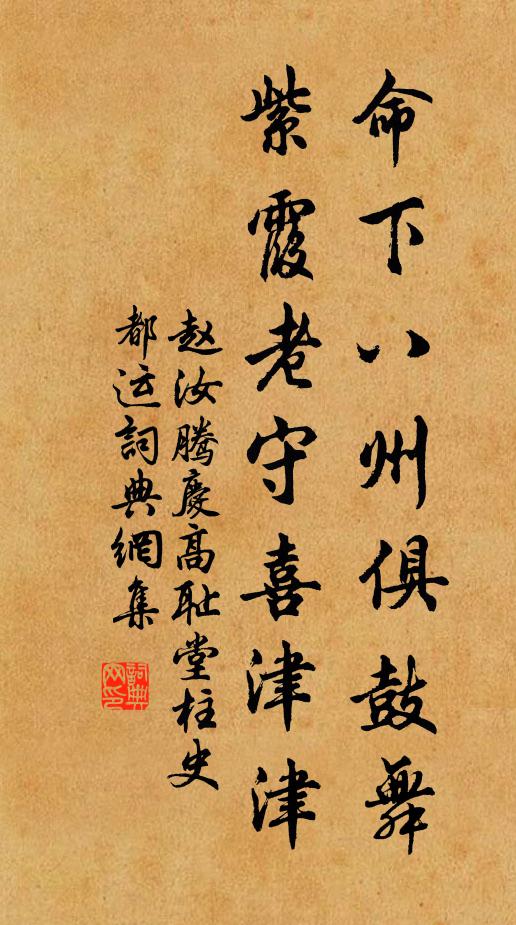 命下八州俱鼓舞
紫霞老守喜津津
赵汝腾慶高耻堂柱史
都运詞典網集
詞典网印